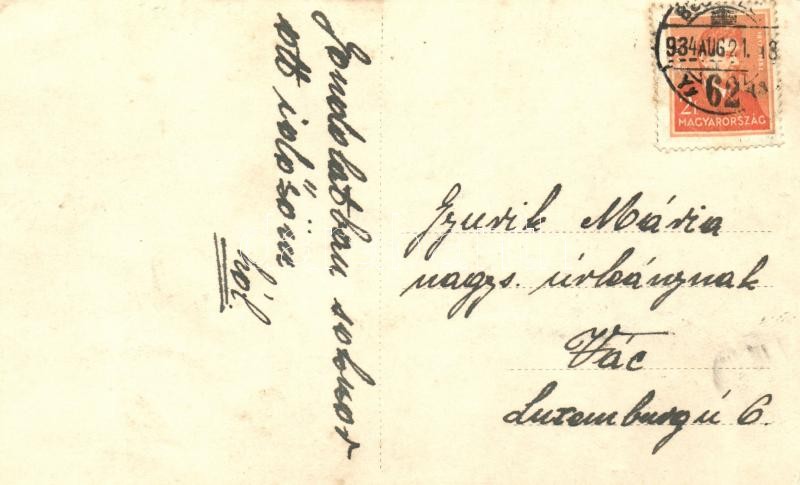 Gondolatban sokszor
ott időzöm
934 AUG 21. 18
62
MAGYARORSZÁG
Gyurik Mária
nagys. úrleánynak
Vác
Luxemburg ú 6.